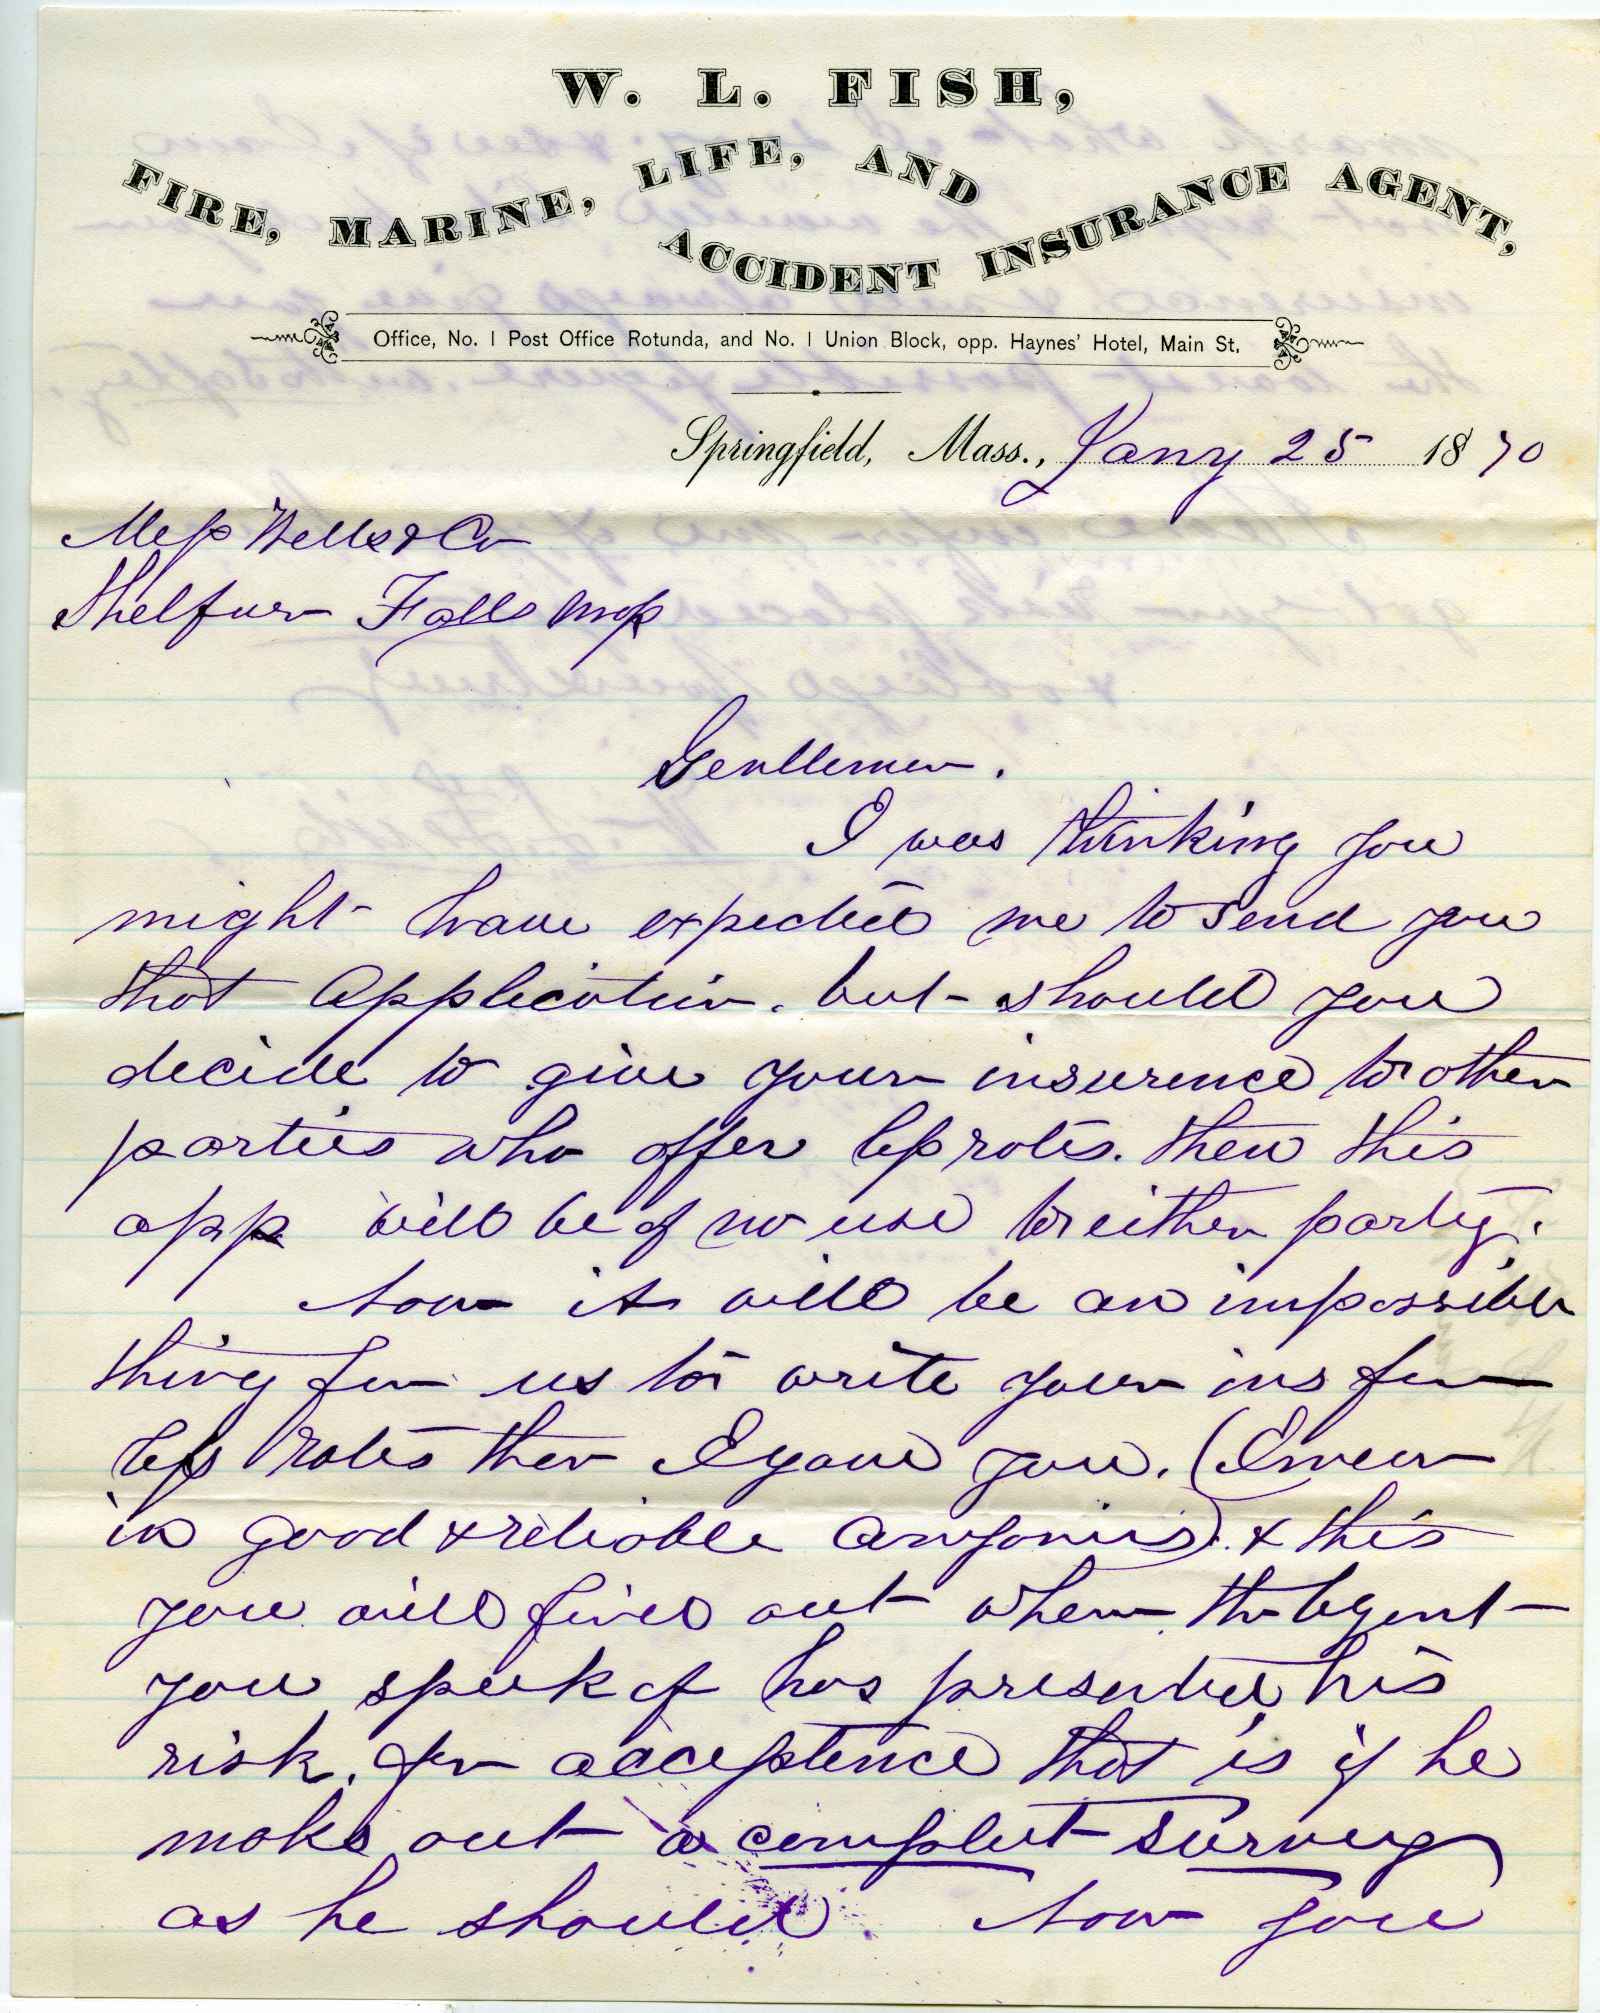 W. L. FISH,
FIRE, MARINE, LIFE, AND
ACCIDENT INSURANCE AGENT,
Office, No. 1 Post Office Rotunda, and No. 1 Union Block, opp. Haynes' Hotel, Main St,
Springfield, Mass., Jany 25 1870
Mess Wells & Co
Shelburn Falls Mass
Gentlemen.
I was thinking you
might have expected me to send you
that Application. but should you
decide to give your insurence to other
parties who offer less rates. then this
app will be of no use to either party.
Now it will be an impossible
thing for us to write your ins for
less rates then I gave you. (I mean
in good & reliable companies). & this
you will find out when the Agent
you speek of has presented his
risk. for acceptence that is if he
make out a complet survey
as he should Now you